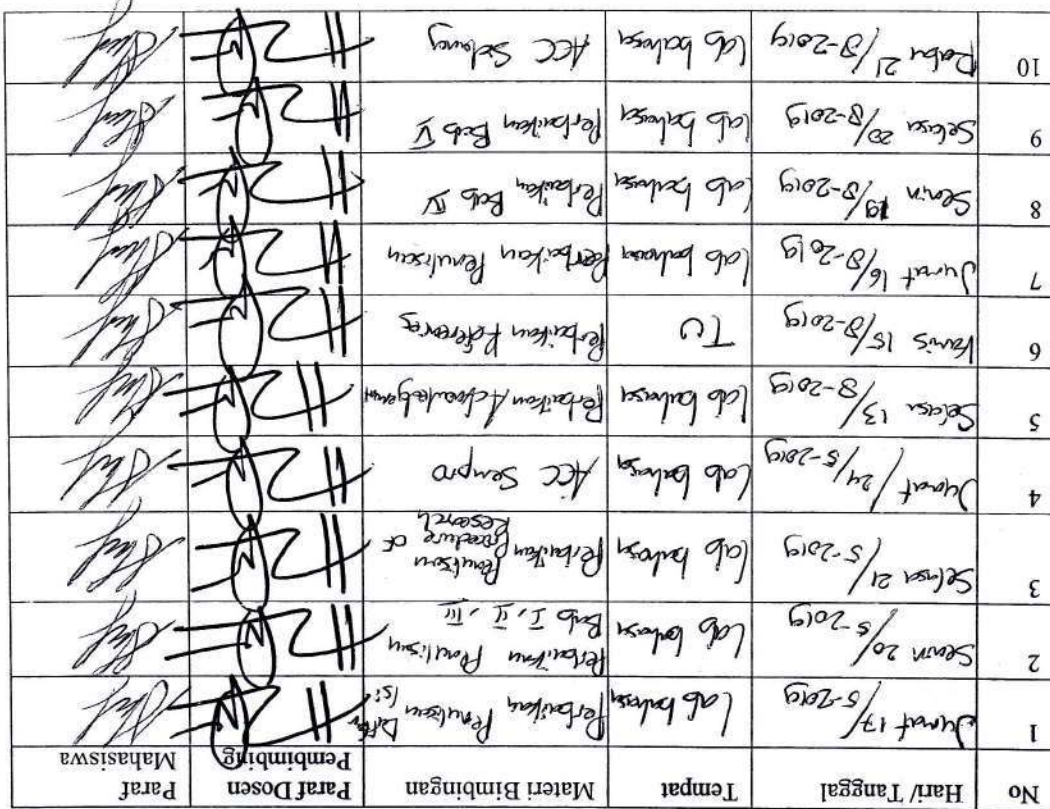 No Hari/ Tanggal Tempat Materi Bimbingan Paraf Dosen Pembimbing Paraf Mahasiswa
1 Jumat 17/5-2019 Lab bahasa Perbaikan Penulisan Daftar Isi
2 Senin 20/5-2019 Lab bahasa Perbaikan Penulisan Bab I, II, III
3 Selasa 21/5-2019 Lab bahasa Perbaikan Penulisan Procedure of Research
4 Jumat/24/5-2019 Lab bahasa ACC Sempro
5 Selasa 13/8-2019 Lab bahasa Perbaikan
6 Kamis 15/8-2019 TU Perbaikan References
7 Jumat 16/8-2019 Lab bahasa Perbaikan Penulisan
8 Senin 19/8-2019 Lab bahasa Perbaikan Bab IV
9 Selasa 20/8-2019 Lab bahasa Perbaikan Bab V
10 Rabu 21/8-2019 Lab bahasa ACC Sidang